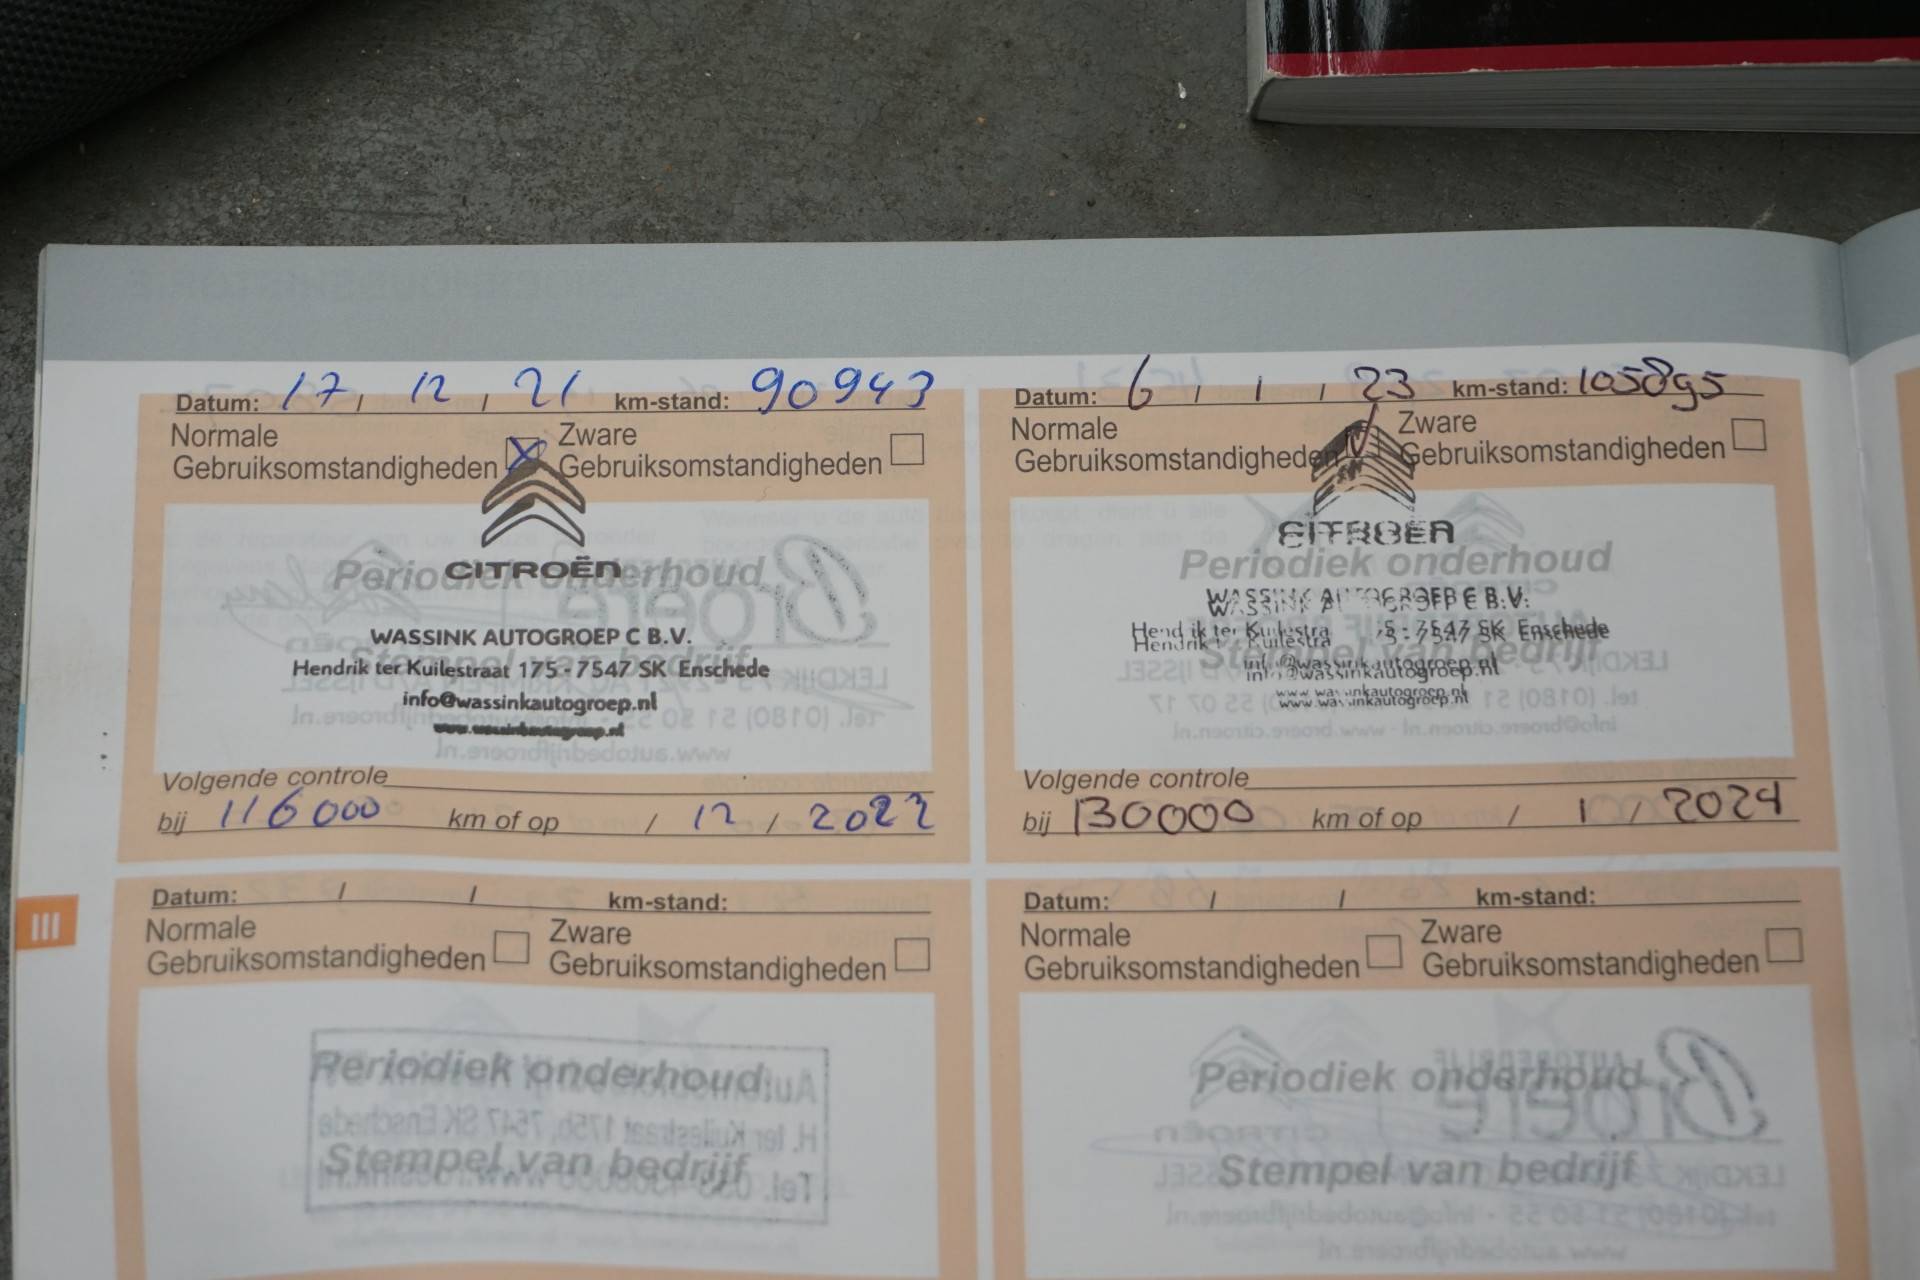 Datum: 17 / 12 / 21 km-stand: 90943
Normale Gebruiksomstandigheden X Zware Gebruiksomstandigheden
CITROËN
Periodiek onderhoud
WASSINK AUTOGROEP C B.V.
Stempel van bedrijf
Hendrik ter Kuilestraat 175 - 7547 SK Enschede
info@wassinkautogroep.nl
www.wassinkautogroep.nl
Volgende controle
bij 116000 km of op / 12 / 2022
Datum: 6 / 1 / 23 km-stand: 105895
Normale Gebruiksomstandigheden Zware Gebruiksomstandigheden
CITROËN
Periodiek onderhoud
WASSINK AUTOGROEP C B.V.
Hendrik ter Kuilestra 75 - 7547 SK Enschede
Stempel van bedrijf
info@wassinkautogroep.nl
www.wassinkautogroep.nl
Volgende controle
bij 130000 km of op / 1 / 2024
III
Datum: / / km-stand:
Normale Gebruiksomstandigheden Zware Gebruiksomstandigheden
Periodiek onderhoud
Stempel van bedrijf
Datum: / / km-stand:
Normale Gebruiksomstandigheden Zware Gebruiksomstandigheden
Periodiek onderhoud
Stempel van bedrijf